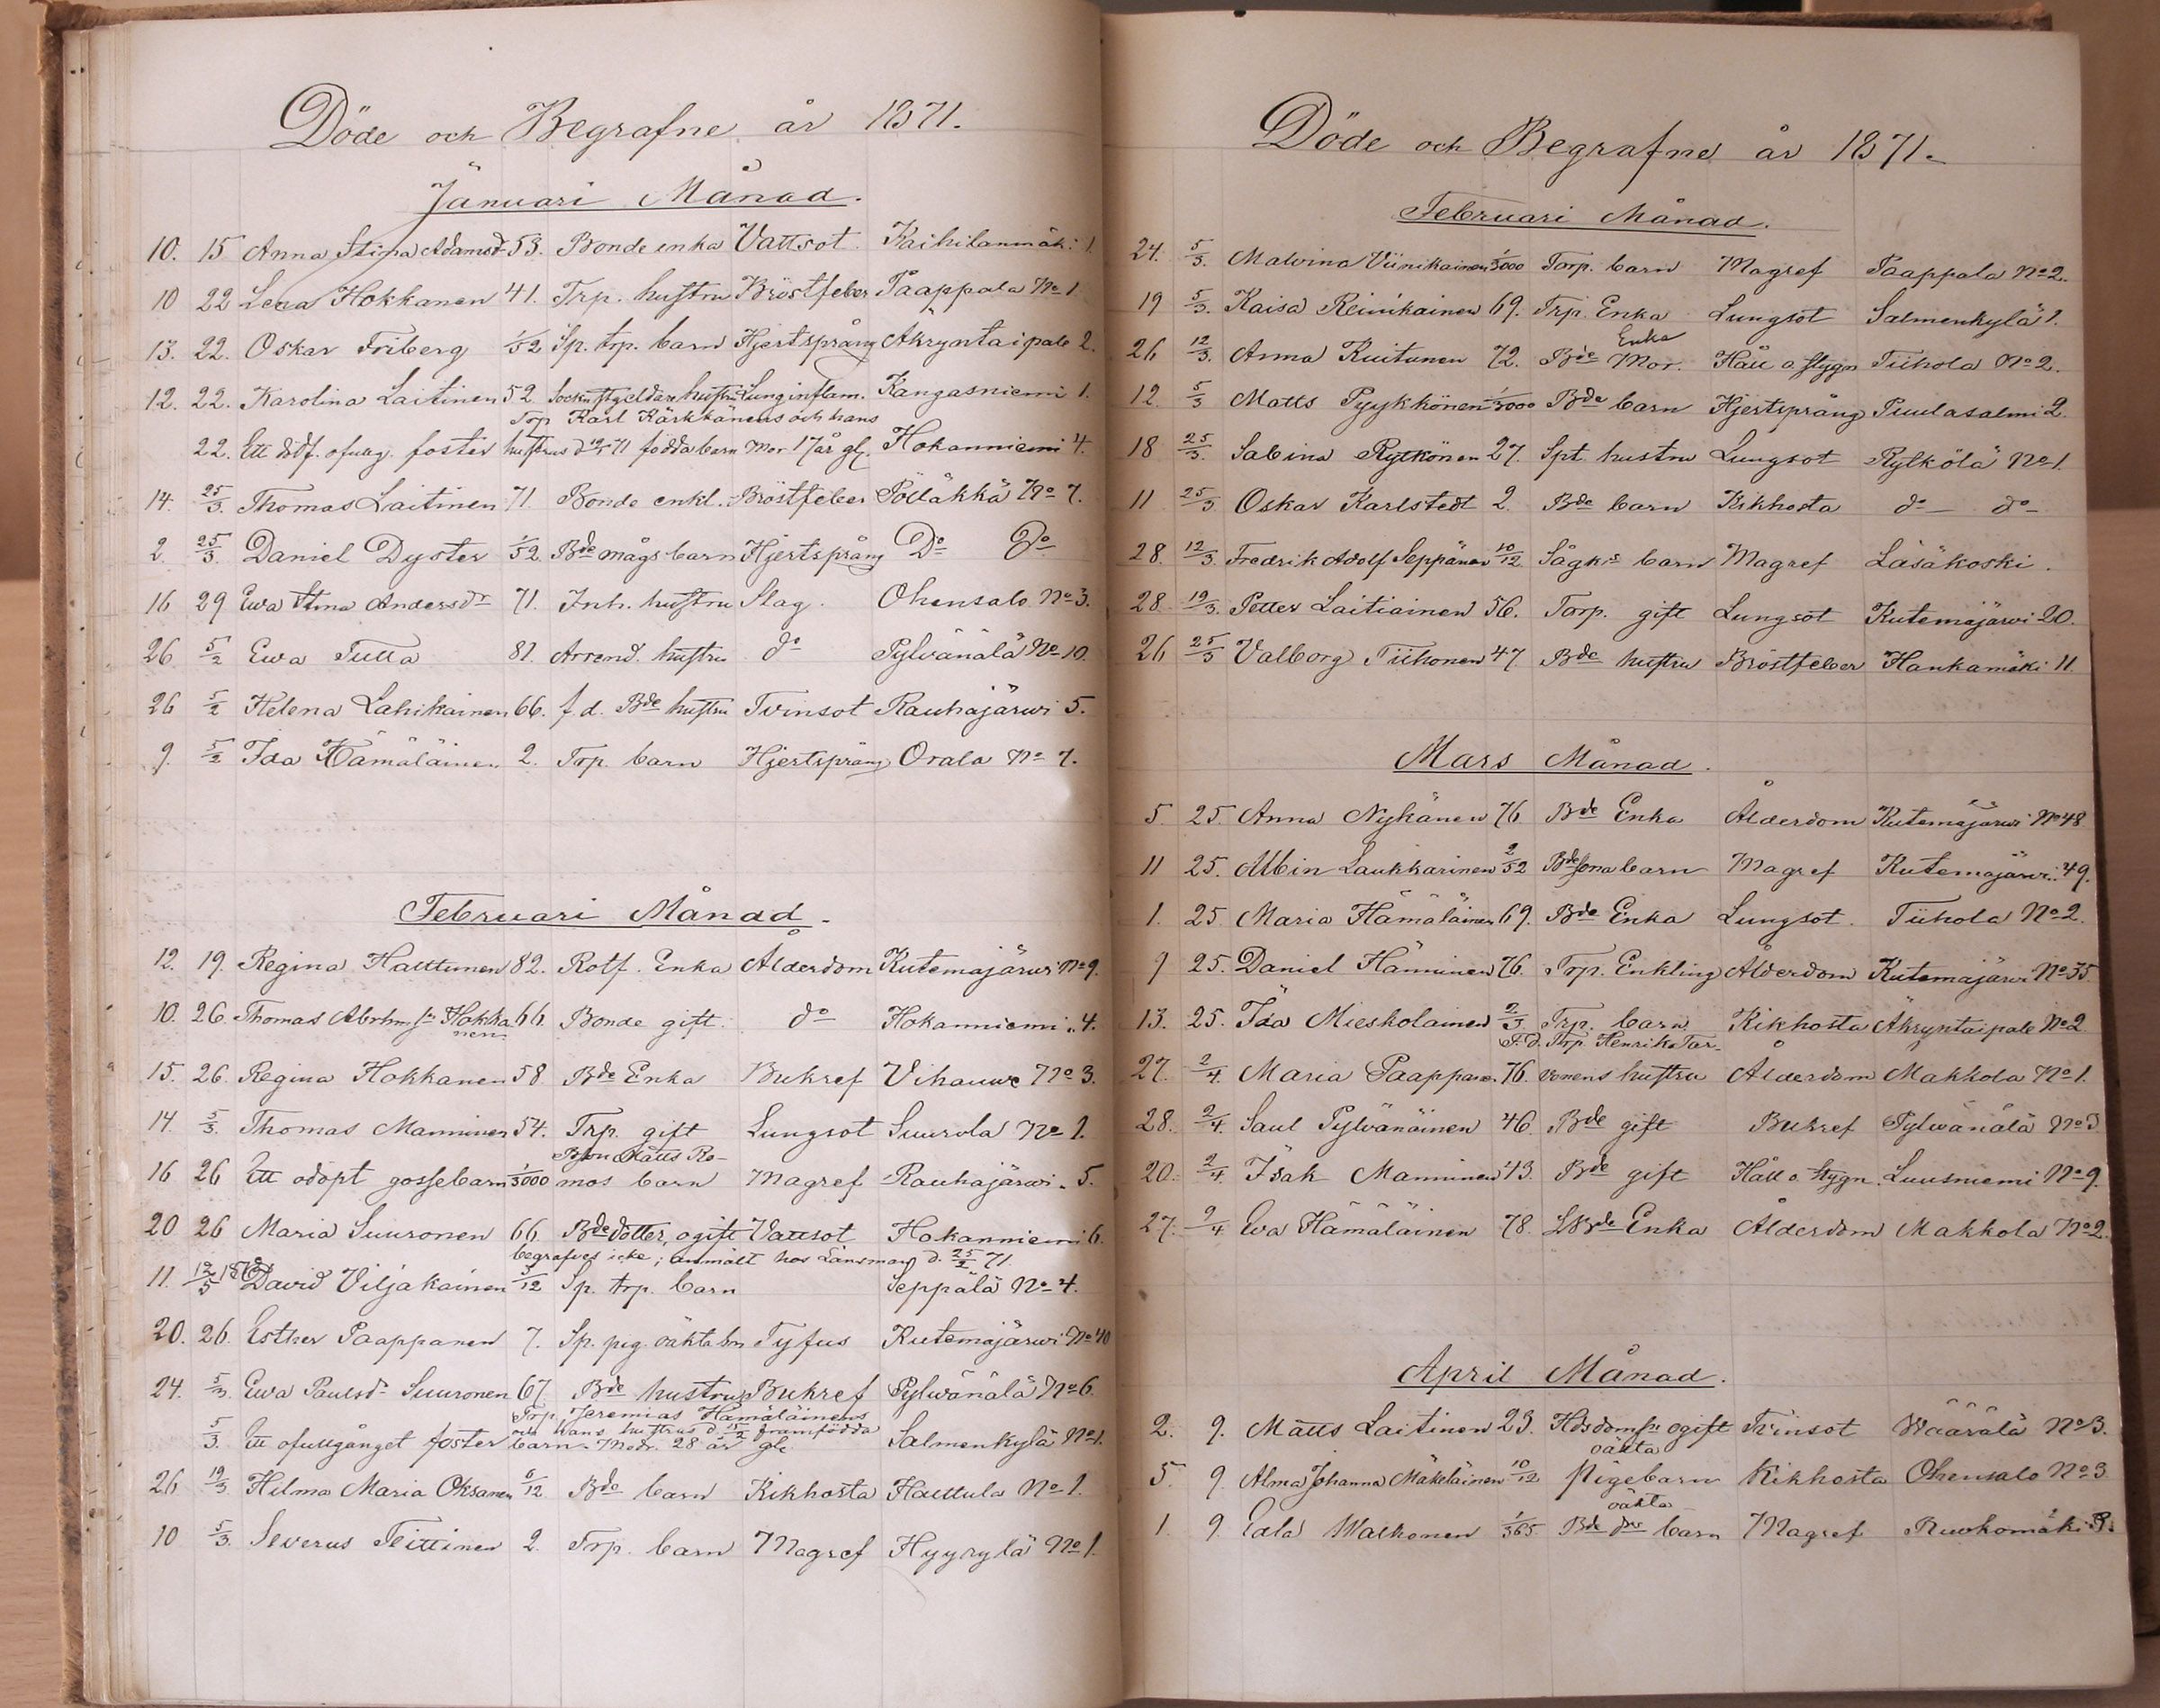 Döde och Begrafne år 1871.
Januari Månad.
10. 15 Anna Stina Adamsd. 53. Bonde enka Vattsot. Kaihilanmäki 1.
10 22 Lena Hokkanen 41. Trp. hustru Bröstfeber Paappala No 1.
13. 22. Oskar Friberg 1/52 Sp. trp. barn Hjertsprång Äkryntaipale 2.
12. 22. Karolina Laitinen 52. hustru Lunginflam. Kangasniemi 1.
Trp Karl Kärkkänens och hans
22. Ett dödf. ofullg. foster hustrus d 71 födda barn Mor 17 år gl. Hokanniemi 4.
14. 25/3. Thomas Laitinen 71. Bonde enkl. Bröstfeber Pölläkkä No 7.
2. 25/3. Daniel Dyster 1/52 Bde mågs barn Hjertsprång Do Do
16 29 Ewa Stina Andersdr 71. Inh. hustru Slag. Ohensalo No 3.
26 5/2 Ewa Tulla 81. Arrend. hustru do Pylvänälä No 10.
26 5/2 Helena Lahikainen 66. f.d. Bde hustru Tvinsot Rauhajärwi 5.
9. 5/2 Ida Hämäläinen 2. Trp. barn Hjertsprång Orala No 7.
Februari Månad.
12. 19. Regina Halttunen 82. Rotf. Enka Ålderdom Kutemajärwi No 9.
10. 26. Thomas Abrhmsn Hokka 66. Bonde gift. do Hokanniemi „ 4.
nen
15. 26. Regina Hokkanen 58 Bde Enka Bukref Vihauwe No 3.
14. 5/3. Thomas Manninen 54. Trp. gift Lungsot Suurola No 1.
Bson Matts Ro-
16 26 Ett odöpt gossebarn 1/3000 mos barn Magref Rauhajärwi „ 5.
20 26 Maria Suuronen 66 Bde dotter, ogift Vattsot Hokanniemi 6.
begrafves icke; anmält hos Länsman d. 25/2 71.
11. 12/3 David Viljakainen 3/12 Sp. trp. barn Seppälä No 4.
20. 26. Esther Paappanen 7. Sp. pig. oäkta bn Tyfus Kutemajärwi No 40
24. 5/3. Ewa Paulsdr Suuronen 67. Bde hustru Bukref Pylwänälä No 6.
Trp. Jeremias Hämäläinens
och hans hustrus d. 15/2 framfödda
5/3. Ett ofullgånget foster barn. Modr. 28 år gl. Salmenkylä No 1.
26 19/3 Hilma Maria Oksanen 6/12 Bde barn Kikhosta Hauttula No 1.
10 5/3. Severus Teittinen 2. Trp. barn Magref Hyyrylä No 1.
Döde och Begrafne år 1871.
Februari Månad.
24. 5/3. Malvina Viinikainen 1/3000 Torp. barn Magref Paappala No 2.
19 5/3. Kaisa Reinikainen 69. Trp. Enka Lungsot Salmenkylä 1.
Enka
26 12/3. Anna Kuitunen 72. Bde Mor. Håll o. stygn Tiihola No 2.
12. 5/3 Matts Pyykkönen 1/3000 Bde barn Hjertsprång Puulasalmi 2.
18 25/3. Sabina Rytkönen 27. Spt. hustru Lungsot Rytkölä No 1.
11 25/3 Oskar Karlstedt 2. Bde barn Kikhosta do do
28. 12/3. Fredrik Adolf Seppänen 10/12 Sågks barn Magref Läsäkoski.
28. 19/3. Petter Laitiainen 56. Torp. gift Lungsot Kutemajärwi 20.
26 25/3 Valborg Tiihonen 47. Bde hustru Bröstfeber Hankamäki 11.
Mars Månad.
5. 25. Anna Nykänen 76. Bde Enka Ålderdom Kutemajärwi No 48
11 25. Albin Laukkarinen 2/52 Bde sona barn Magref Kutemajärwi „ 49.
1. 25 Maria Hämäläinen 69. Bde Enka Lungsot. Tiihola No 2.
9 25. Daniel Hänninen 76. Trp. Enkling Ålderdom Kutemajärwi No 35.
13. 25. Ida Miesholainen Trp. barn Kikhosta Äkryntaipale No 2
F.d. Trp. Henrik Tar-
27. 2/4. Maria Paappanen 76. vonens hustru Ålderdom Makkola No 1.
28. 2/4. Saul Pylvänäinen 46. Bde gift Bukref Pylwänälä No 3
20. 2/4. Isak Manninen 43. Bde gift Håll o. stygn. Luusniemi No 9.
27. 2/4 Ewa Hämäläinen 78. Bde Enka Ålderdom Makkola No 2.
April Månad.
2. 9. Matts Laitinen 23. ogift Tvinsot Wäärälä No 3.
oäkta
5. 9. Alma Johanna Mäkeläinen 10/12 Pigebarn Kikhosta Ohensalo No 3
oäkta
1. 9. Edla Walkonen 1/365 Bde dtr barn Magref Ruokomäki